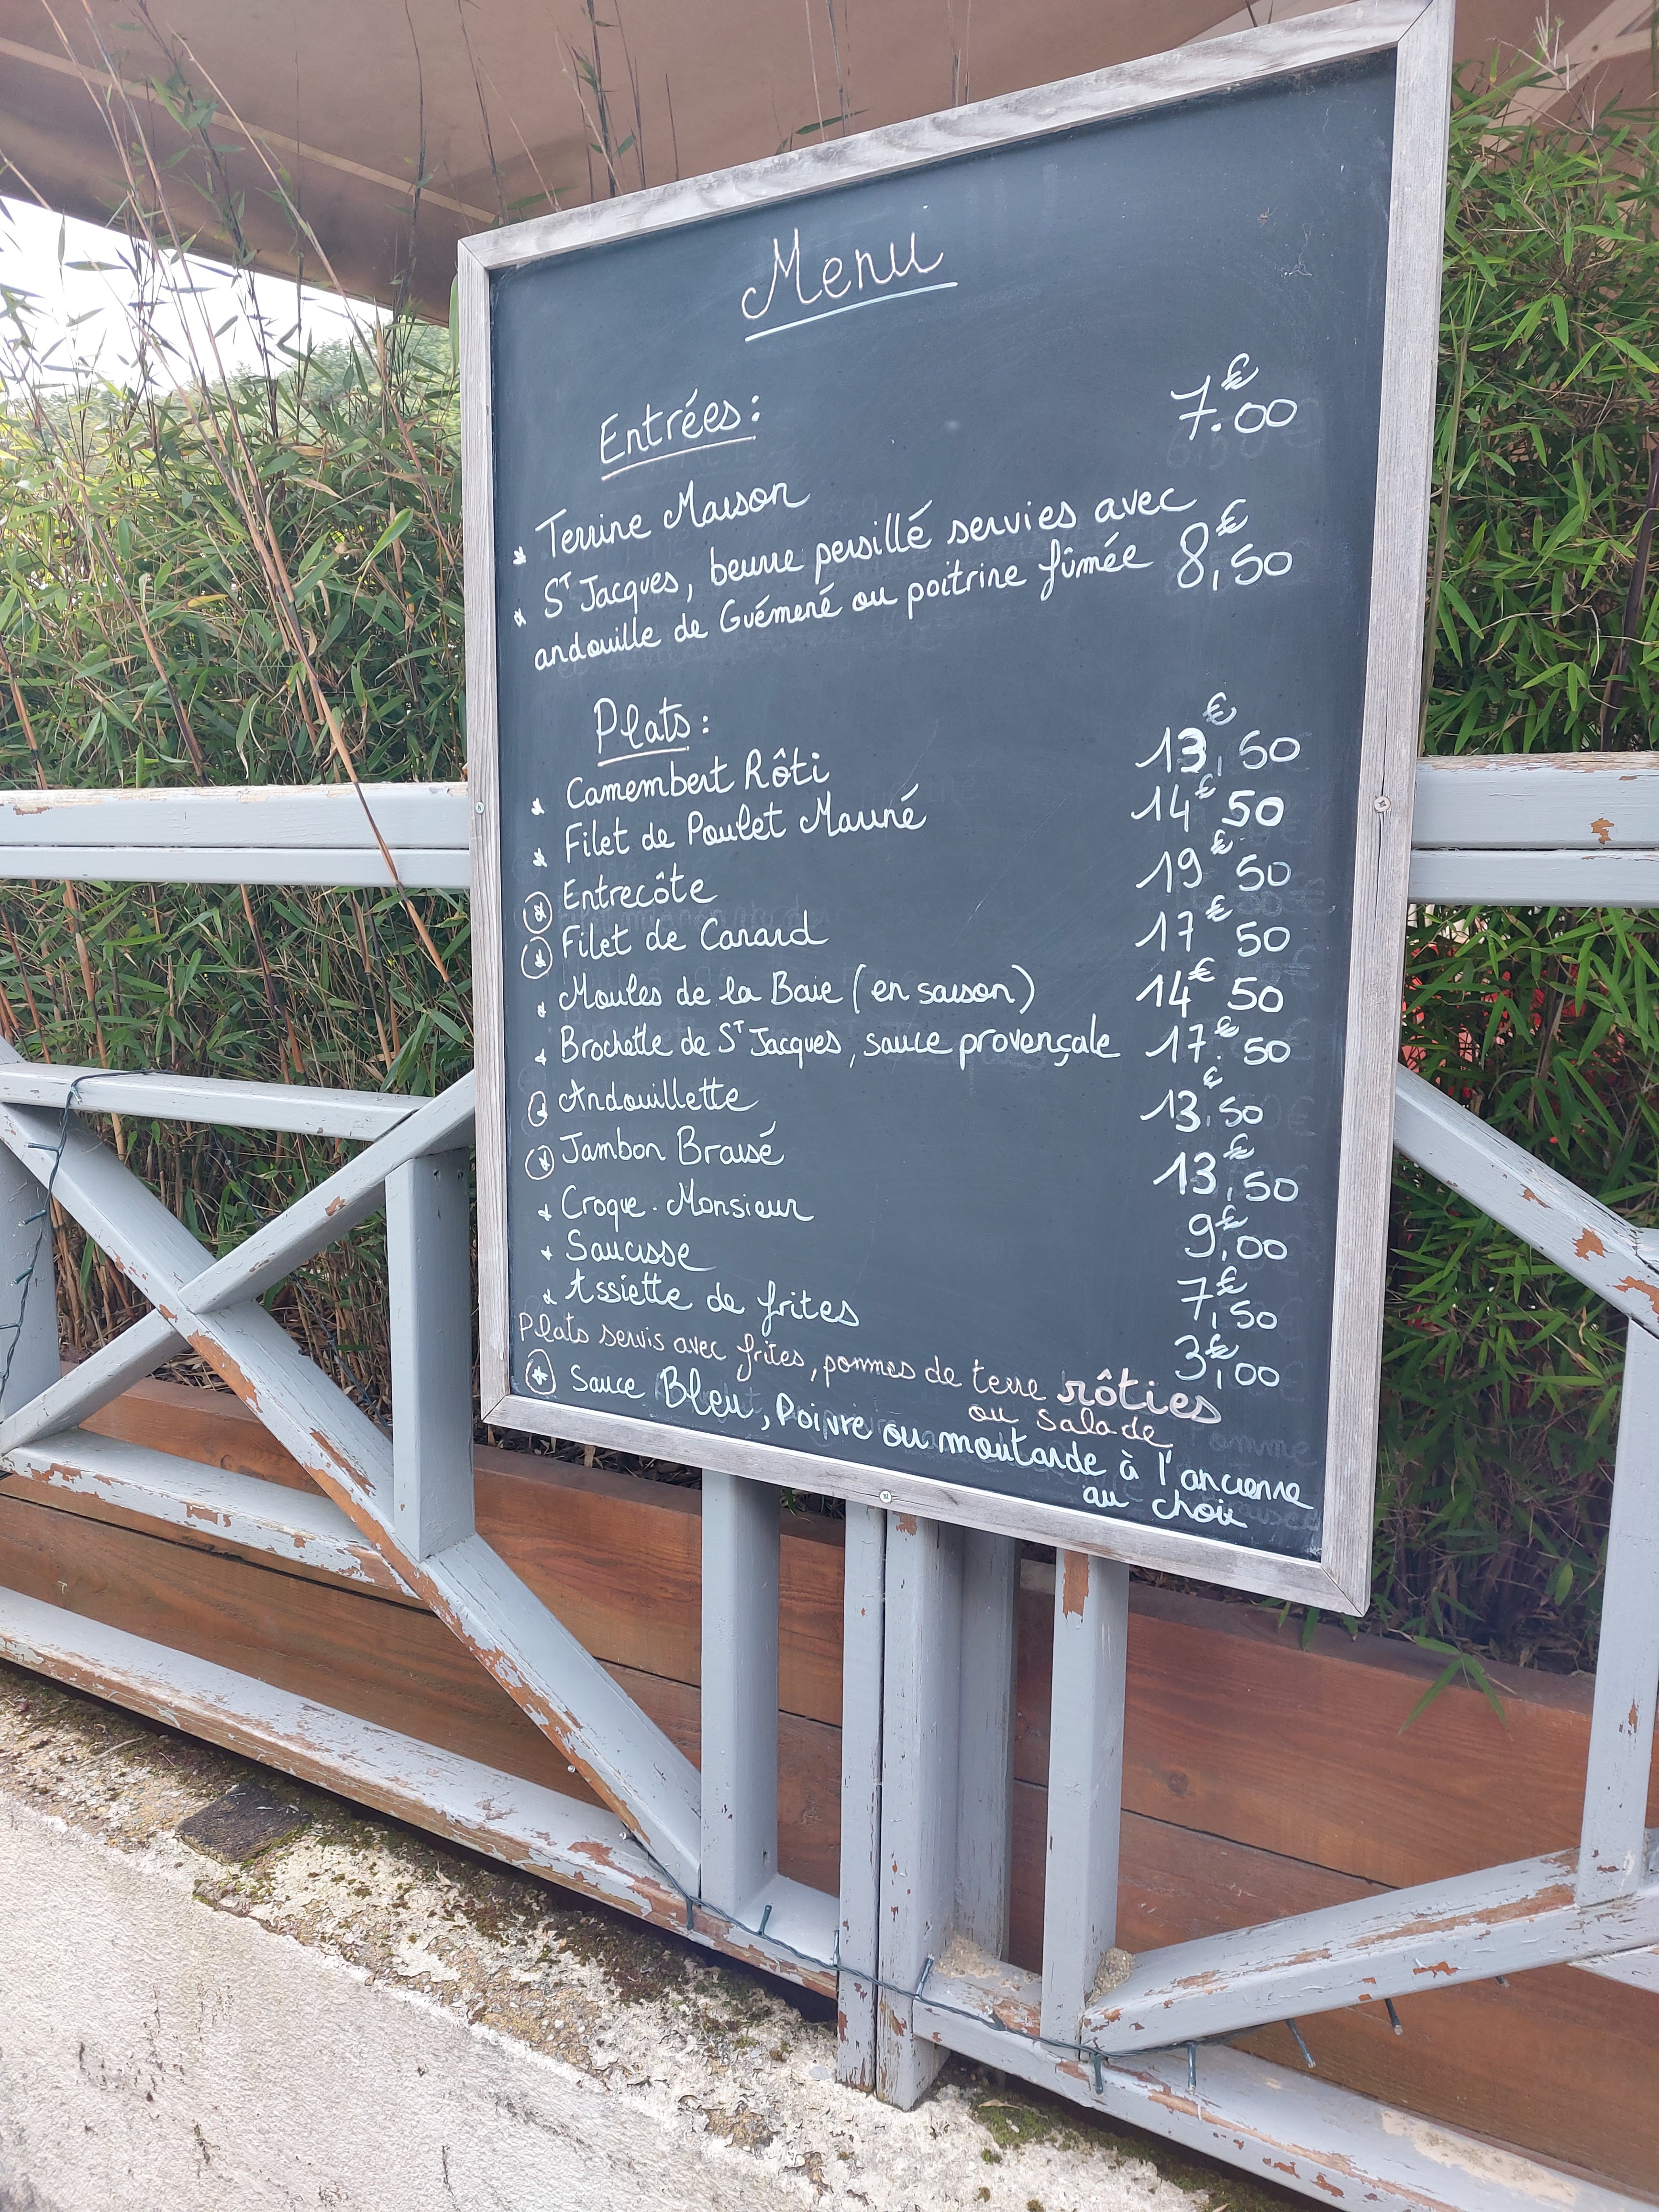 Menu
Entrées: 7.00€
* Terrine Maison
* St Jacques, beurre persillé servies avec
andouille de Guémené ou poitrine fûmée 8,50€
Plats:
* Camembert Rôti 13,50€
* Filet de Poulet Mariné 14€50
* Entrecôte 19€50
* Filet de Canard 17€50
* Moules de la Baie (en saison) 14€50
* Brochette de St Jacques, sauce provençale 17€50
* Andouillette 13,50€
* Jambon Braisé 13,50€
* Croque-Monsieur 9,00€
* Saucisse 7,50€
* Assiette de frites 3,00€
Plats servis avec frites, pommes de terre rôties
ou salade
* Sauce Bleu, Poivre ou moutarde à l'ancienne
au choix